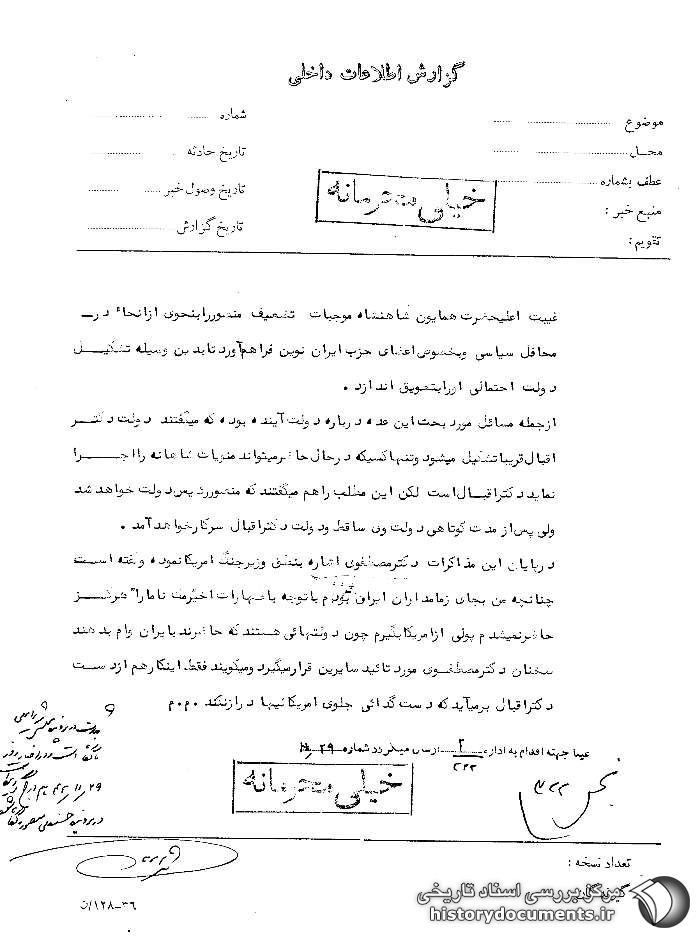 گزارش اطلاعات داخلی
موضوع
شماره
محل
تاریخ حادثه
عطف بشماره
تاریخ وصول خبر
منبع خبر :
تاریخ گزارش
تقویم :
خیلی محرمانه
غیبت اعلیحضرت همایون شاهنشاه موجبات تضعیف منصور را بنحوی از انحاء در
محافل سیاسی و بخصوص اعضای حزب ایران نوین فراهم آورد تا بدین وسیله تشکیل
دولت احتمالی او را بتعویق اندازد .
از جمله مسائل مورد بحث این عده درباره دولت آینده بوده که میگفتند دولت دکتر
اقبال قریبا تشکیل میشود و تنها کسیکه در حال حاضر میتواند منویات شاهانه را اجرا
نماید دکتر اقبال است لکن این مطلب را هم میگفتند که منصور رئیس دولت خواهد شد
ولی پس از مدت کوتاهی دولت وی ساقط و دولت دکتر اقبال سرکار خواهد آمد .
در پایان این مذاکرات دکتر مصطفوی اشاره بنطق وزیر جنگ امریکا نموده و گفته است
چنانچه من بجای زمامداران ایران بودم با توجه باظهارات اخیر مک نامارا هرگز
حاضر نمیشدم پولی از امریکا بگیرم چون دولتهائی هستند که حاضرند بایران وام بدهند
سخنان دکتر مصطفوی مورد تائید سایرین قرار میگیرد و میگویند فقط اینکار هم از دست
دکتر اقبال برمیآید که دست گدائی جلوی امریکائیها دراز نکند م.م.
عینا جهت اقدام به اداره ۲/۳۲۲ ارسال میگردد شماره
خیلی محرمانه
تعداد نسخه :
۳۶-۱۲۸/ن
مرکز بررسی اسناد تاریخی
historydocuments.ir